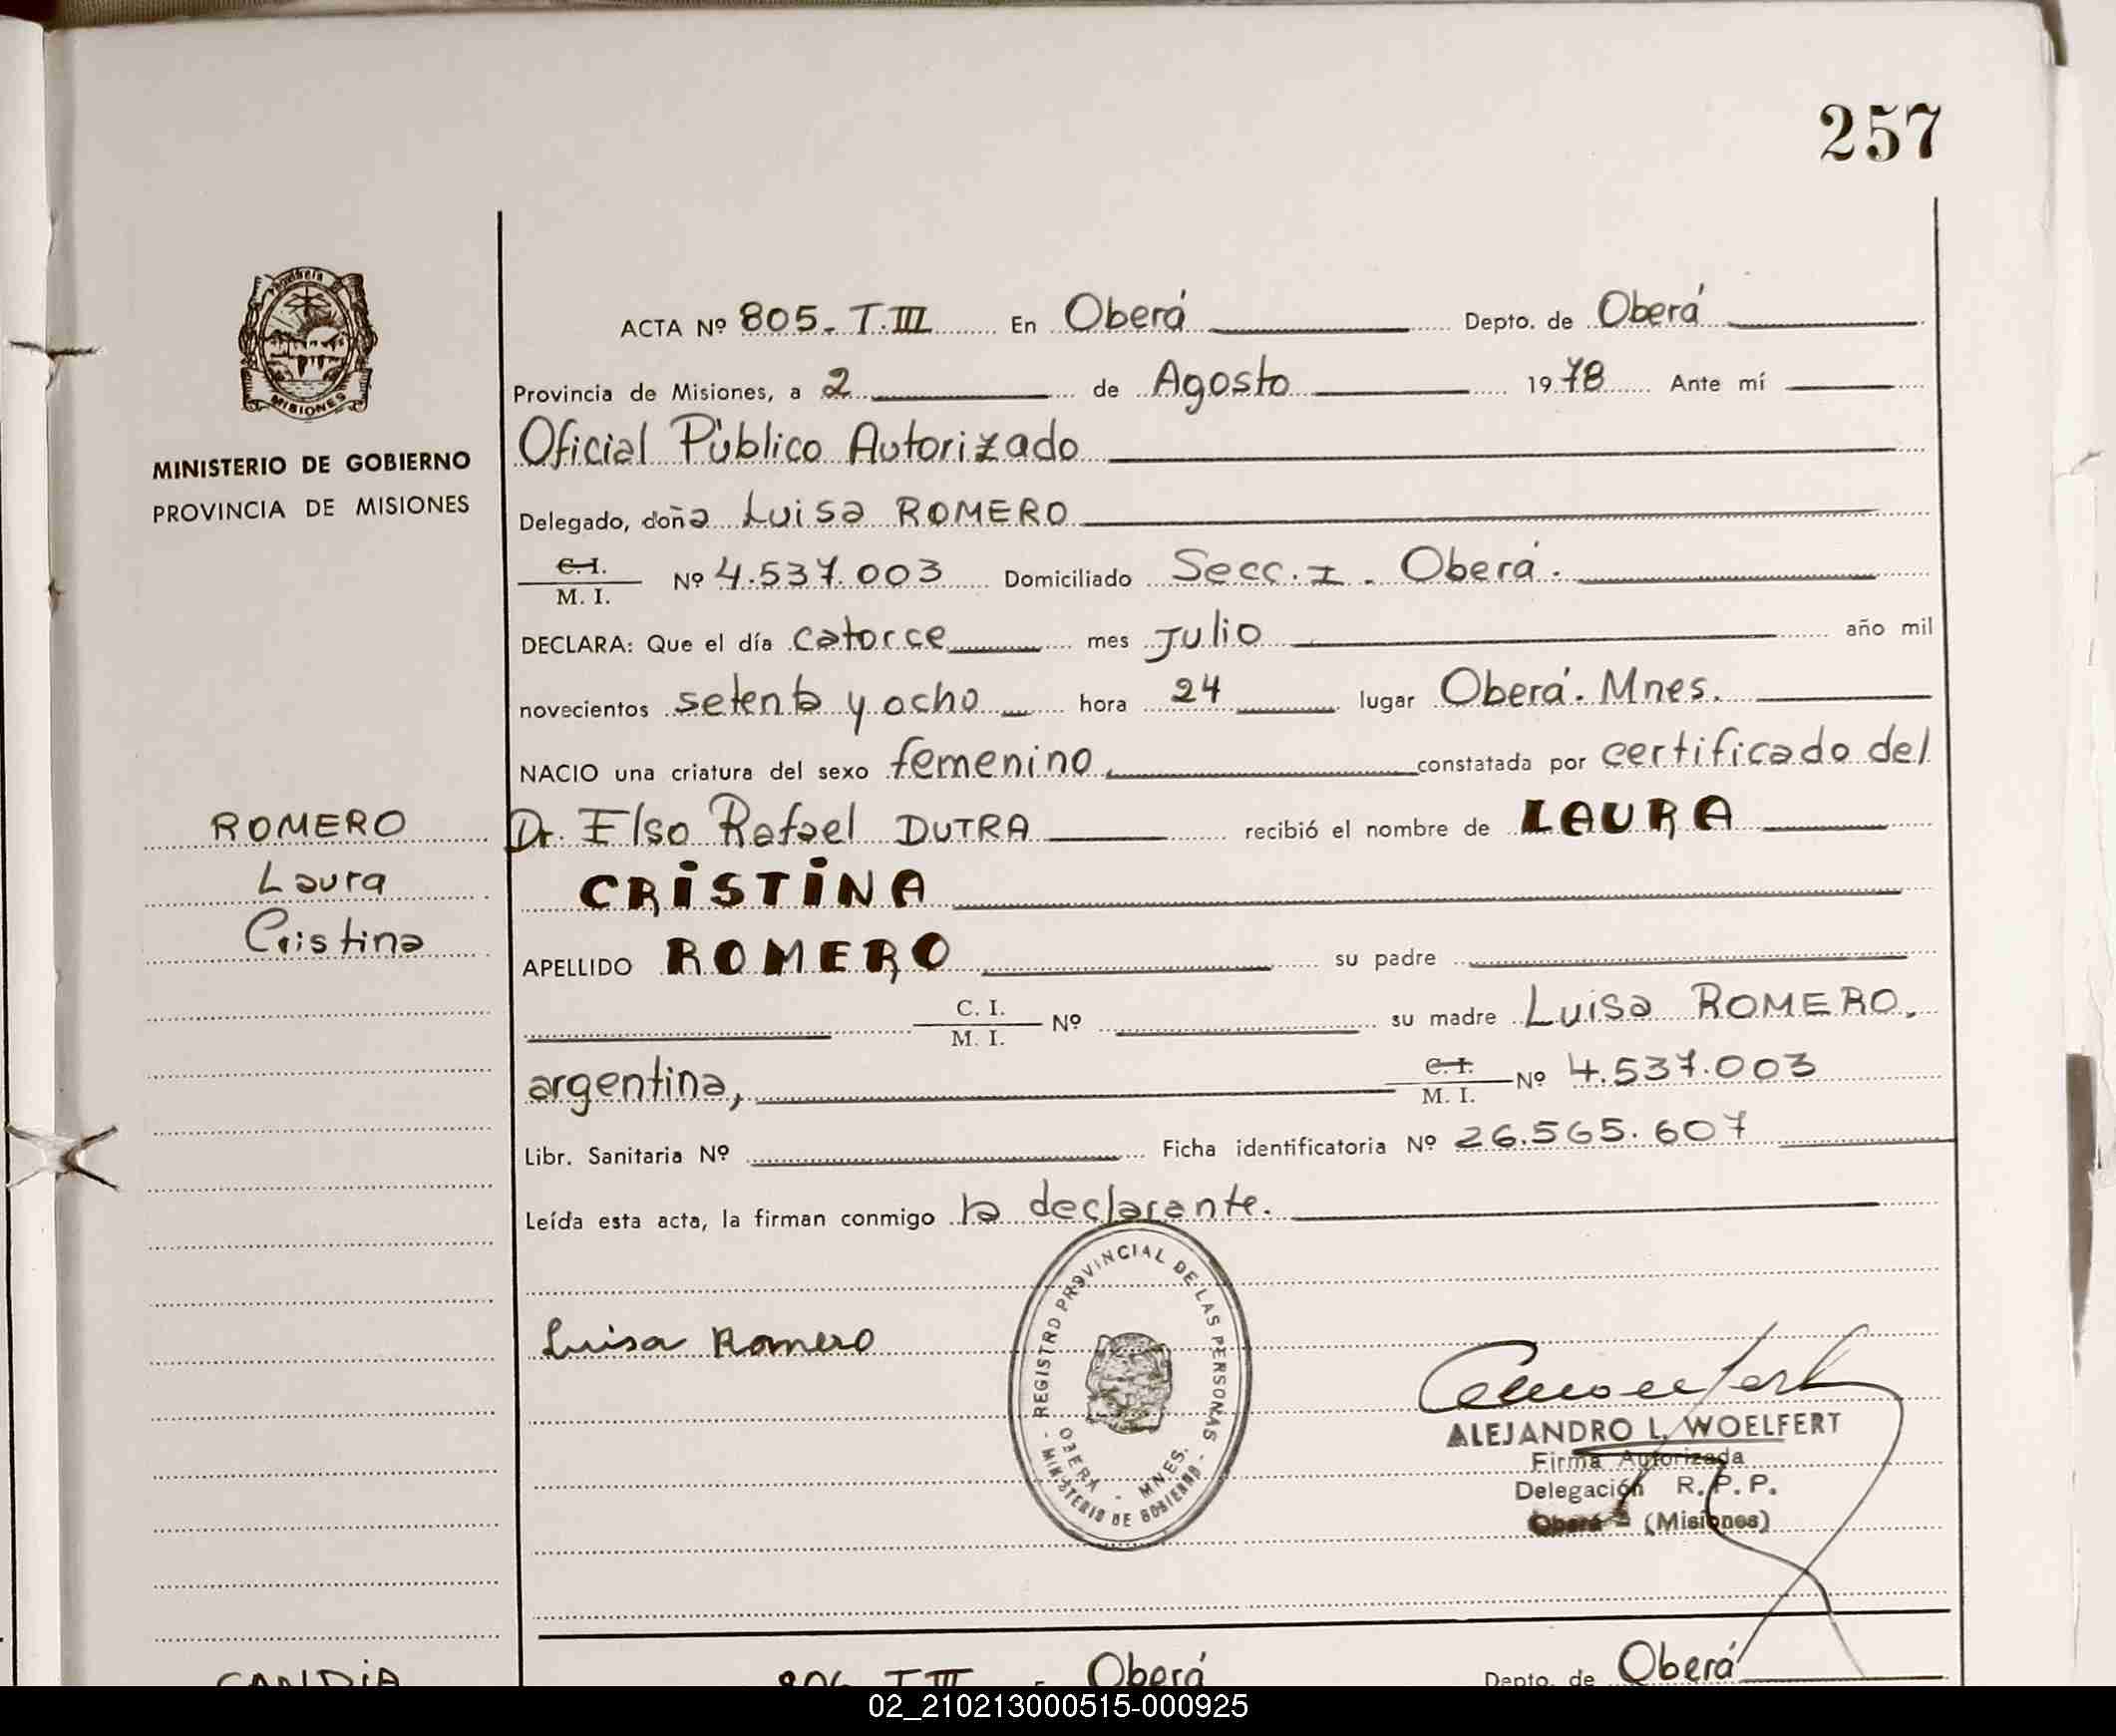 257
Provincia
MISIONES
MINISTERIO DE GOBIERNO
PROVINCIA DE MISIONES
ROMERO
Laura
Cristina
ACTA Nº 805. T.III En Oberá Depto. de Oberá
Provincia de Misiones, a 2 de Agosto 1978 Ante mí
Oficial Público Autorizado
Delegado, doña Luisa ROMERO
C.I.
M. I. Nº 4.537.003 Domiciliado Secc. I. Oberá.
DECLARA: Que el día catorce mes Julio año mil
novecientos setenta y ocho hora 24 lugar Oberá. Mnes.
NACIO una criatura del sexo femenino constatada por certificado del
Dr. Elso Rafael DUTRA recibió el nombre de LAURA
CRISTINA
APELLIDO ROMERO su padre
C. I.
M. I. Nº su madre Luisa ROMERO,
argentina,
C. I.
M. I. Nº 4.537.003
Libr. Sanitaria Nº Ficha identificatoria Nº 26.565.607
Leída esta acta, la firman conmigo la declarante.
REGISTRO PROVINCIAL DE LAS PERSONAS
OBERA - MNES.
- MINISTERIO DE GOBIERNO -
Luisa Romero
ALEJANDRO L. WOELFERT
Firma Autorizada
Delegación R. P. P.
Oberá - (Misiones)
CANDIA
806 T III Oberá Depto. de Oberá
02_210213000515-000925